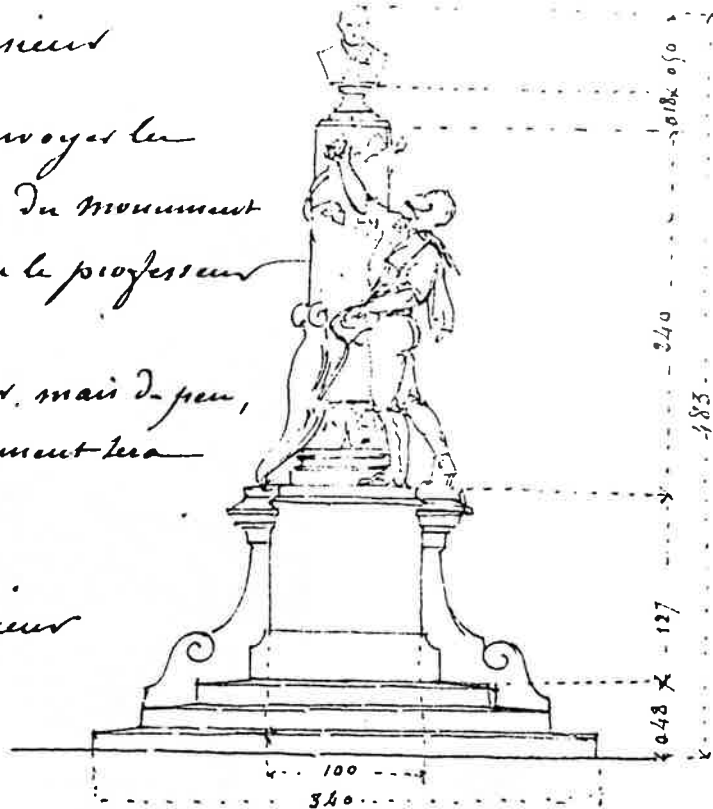 nvoyer les
du monument
le professeur
mais de peu,
ument sera
018 x 050
240
483
127
048 x
100
340